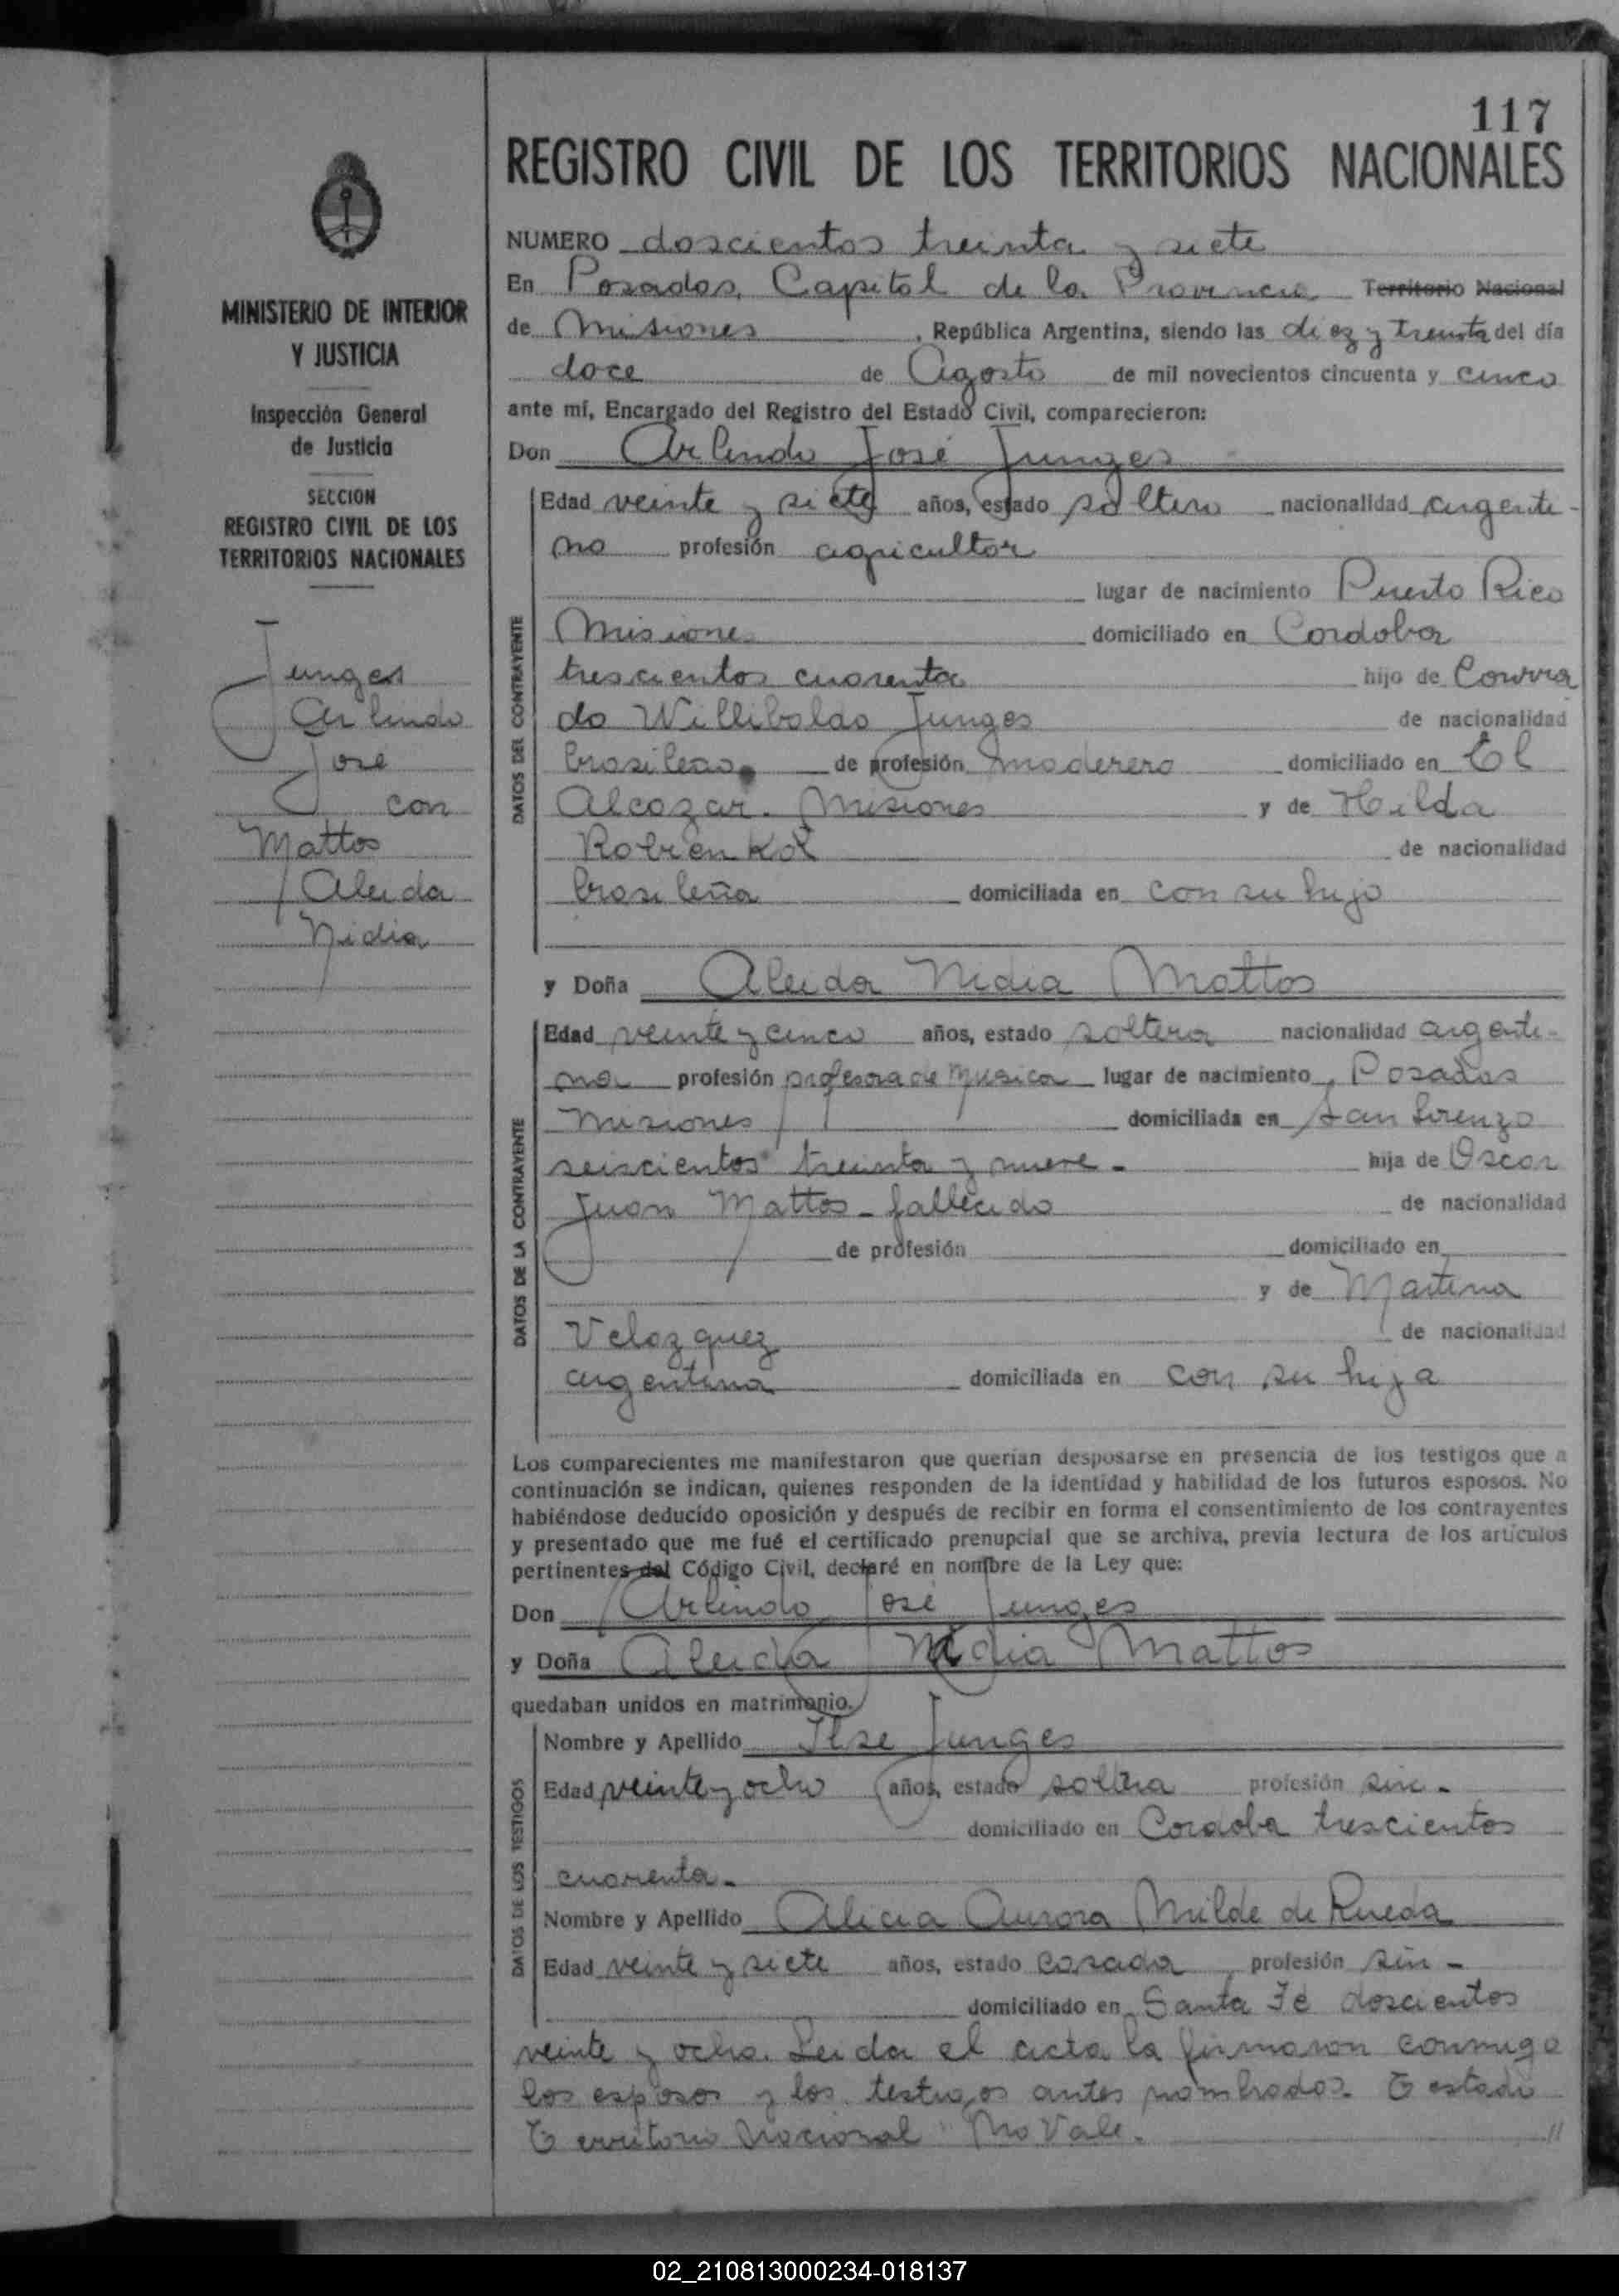 117
REGISTRO CIVIL DE LOS TERRITORIOS NACIONALES
MINISTERIO DE INTERIOR
Y JUSTICIA
Inspección General
de Justicia
SECCION
REGISTRO CIVIL DE LOS
TERRITORIOS NACIONALES
Junges
Arlindo
José
con
Mattos
Aleida
Nidia
NUMERO doscientos treinta y siete
En Posadas, Capital de la Provincia Territorio Nacional
de Misiones, República Argentina, siendo las diez y treinta del día
doce de Agosto de mil novecientos cincuenta y cinco
ante mí, Encargado del Registro del Estado Civil, comparecieron:
Don Arlindo José Junges
DATOS DEL CONTRAYENTE
Edad veinte y siete años, estado soltero nacionalidad argenti-
no profesión agricultor
lugar de nacimiento Puerto Rico
Misiones domiciliado en Cordoba
trescientos cuarenta hijo de Conrra
do Willibaldo Junges de nacionalidad
brasilero. de profesión maderero domiciliado en El
Alcazar. Misiones y de Hilda
de nacionalidad
brasileña domiciliada en con su hijo
y Doña Aleida Nidia Mattos
DATOS DE LA CONTRAYENTE
Edad veinte y cinco años, estado soltera nacionalidad argenti-
na profesión profesora de Musica lugar de nacimiento, Posadas
Misiones domiciliada en San Lorenzo
seiscientos treinta y nueve - hija de Oscar
Juan Mattos - fallecido de nacionalidad
de profesión domiciliado en
y de Martina
Velazquez de nacionalidad
argentina domiciliada en con su hija
Los comparecientes me manifestaron que querían desposarse en presencia de los testigos que a
continuación se indican, quienes responden de la identidad y habilidad de los futuros esposos. No
habiéndose deducido oposición y después de recibir en forma el consentimiento de los contrayentes
y presentado que me fué el certificado prenupcial que se archiva, previa lectura de los artículos
pertinentes del Código Civil, declaré en nombre de la Ley que:
Don Arlindo José Junges
y Doña Aleida Nidia Mattos
quedaban unidos en matrimonio.
DATOS DE LOS TESTIGOS
Nombre y Apellido Ilse Junges
Edad veinte y ocho años, estado soltera profesión sin -
domiciliado en Cordoba trescientos
cuarenta -
Nombre y Apellido Alicia Aurora Milde de Rueda
Edad veinte y siete años, estado casada profesión sin -
domiciliado en Santa Fé doscientos
veinte y ocho. Leida el acta la firmaron conmigo
los esposos y los testigos antes nombrados. Testado
Territorio Nacional" No Vale. - //
02_210813000234-018137